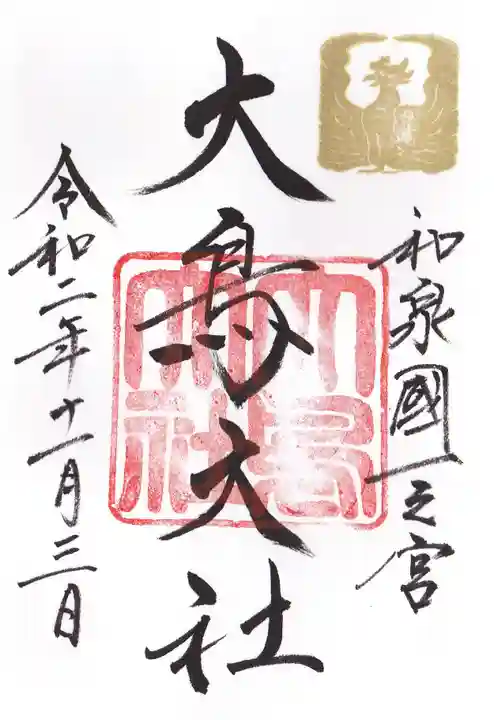 和泉國一之宮
大鳥大社
大鳥大社
令和二年十一月三日